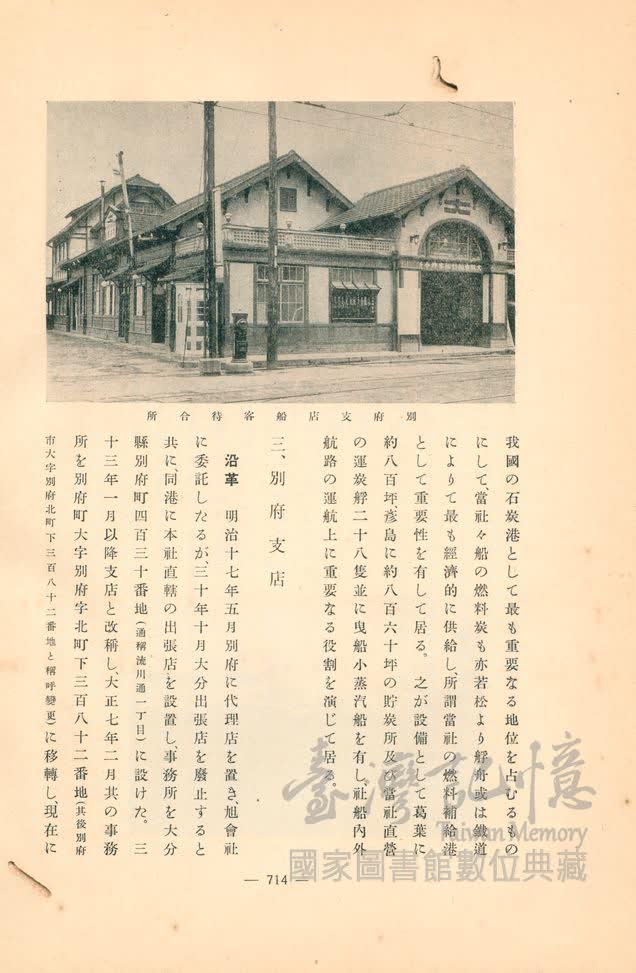 所合待客船店支府別
我國の石炭港として最も重要なる地位を占むるもの
にして、當社々船の燃料炭も亦若松より艀舟或は鐵道
によりて最も經濟的に供給し、所謂當社の燃料補給港
として重要性を有して居る。之が設備として葛葉に
約八百坪、彦島に約八百六十坪の貯炭所及び當社直營
の運炭艀二十八隻並に曳船小蒸汽船を有し、社船內外
航路の運航上に重要なる役割を演じて居る。
三、別府支店
沿革　明治十七年五月別府に代理店を置き、旭會社
に委託したるが、三十年十月大分出張店を廢止すると
共に、同港に本社直轄の出張店を設置し、事務所を大分
縣別府町四百三十番地(通稱流川通一丁目)に設けた。三
十三年一月以降支店と改稱し、大正七年二月其の事務
所を別府町大字別府字北町下三百八十二番地(其後別府
市大字別府北町下三百八十二番地と稱呼變更)に移轉し、現在に
— 714 —
臺灣記憶
Taiwan Memory
國家圖書館數位典藏